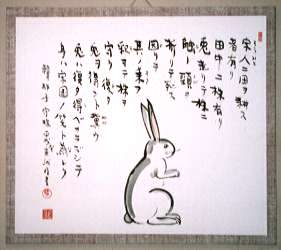 宋人ニ田ヲ耕ス
者有リ
田中ニ株有リ
兎走リテ株ニ
触レ頸ヲ
折リテ死ス
因リテ
其ノ耒ヲ
釈テテ株ヲ
守リ復タ
兎ヲ得ント冀フ
兎ハ復タ得ベカラズシテ
身ハ宋国ノ笑ト為レリ
韓非子 守株